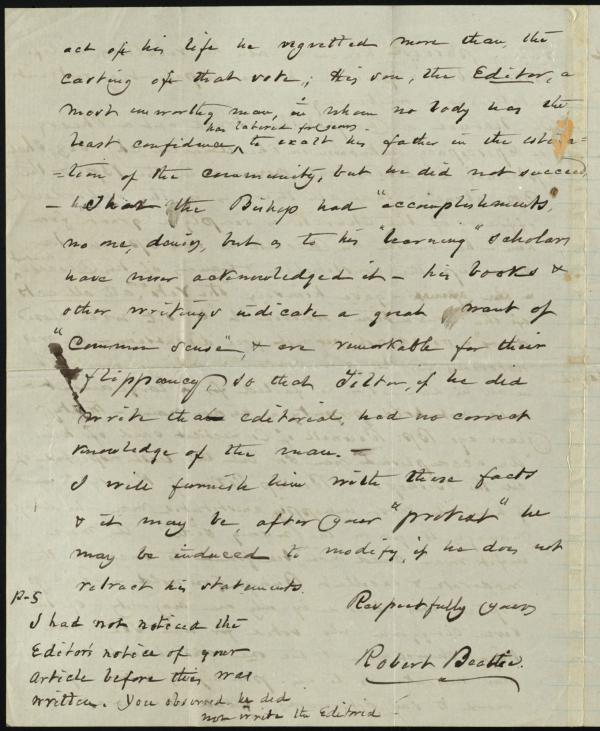 act of his life he regretted more than, the
casting of that vote; His son, the Editor, a
most unworthy man, in whom no body has the
has labored for years
least confidence, to exalt his father in the estima=
=tion of the community, but he did not succeed,
- That the Bishop had "accomplishments",
no one, denies, but as to his "learning" scholars
have never acknowledged it - his books &
other writings indicate a great want of
"Common sense", & are remarkable for their
flippancy, so that Tilton, if he did
write that editorial, had no correct
knowledge of the man. -
I will furnish him with these facts
& it may be, after your "protest" he
may be induced to modify, if he does not
retract his statements.
Respectfully yours
Robert Beattie.
P-S
I had not noticed the
Editors notice of your
article before this was
written. You observed he did
not write the Editorial -